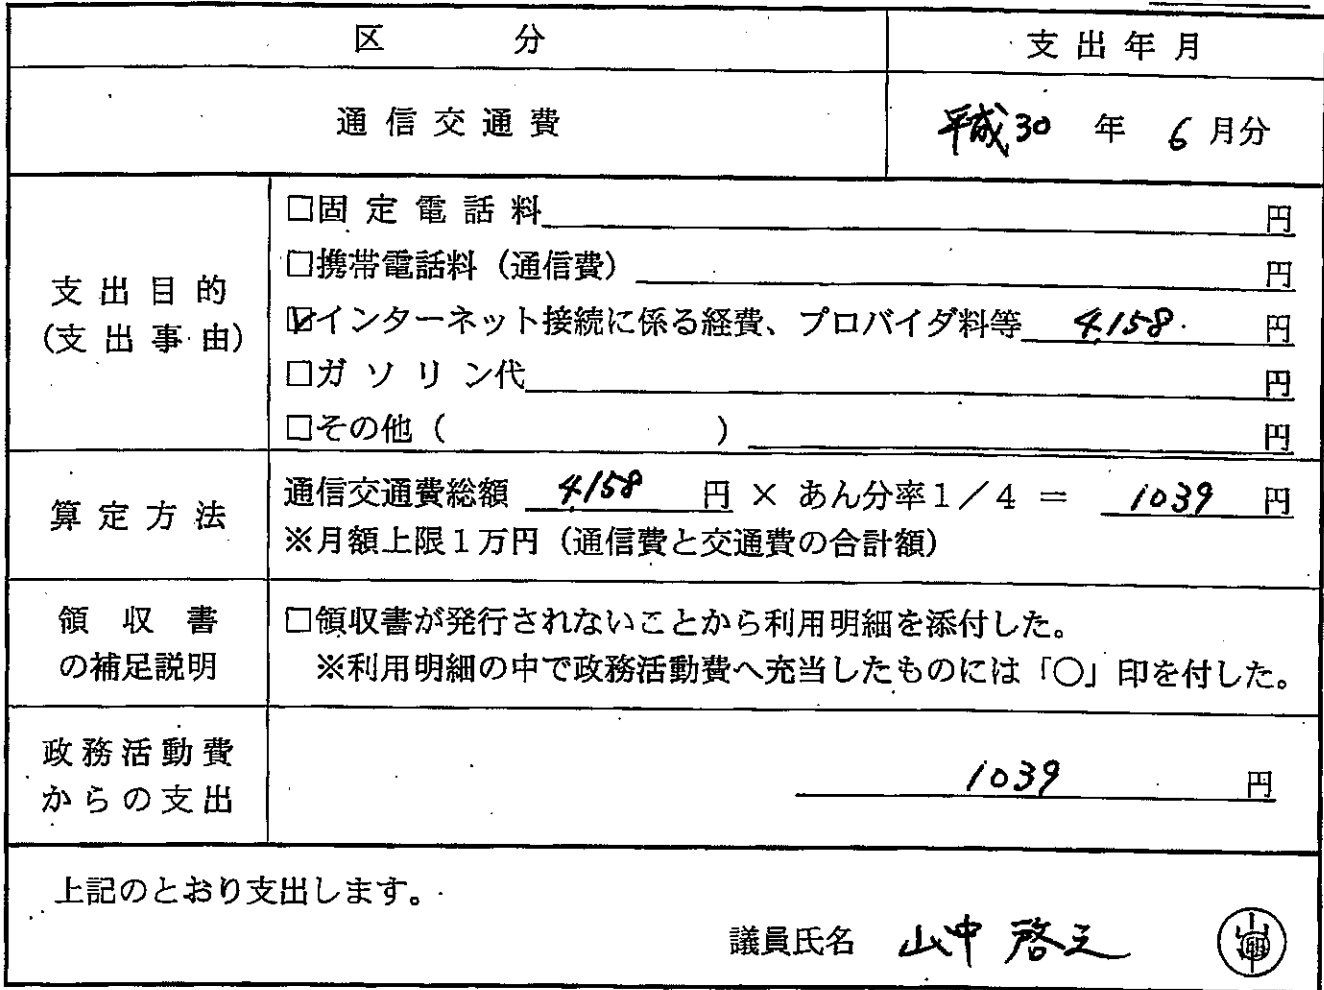 区分 支出年月
通信交通費 平成30年6月分
支出目的
(支出事由)
□固定電話料 円
□携帯電話料（通信費） 円
☑インターネット接続に係る経費、プロバイダ料等 4,158 円
□ガソリン代 円
□その他（ ） 円
算定方法
通信交通費総額 4,158 円 × あん分率1／4 ＝ 1039 円
※月額上限1万円（通信費と交通費の合計額）
領収書
の補足説明
□領収書が発行されないことから利用明細を添付した。
※利用明細の中で政務活動費へ充当したものには「○」印を付した。
政務活動費
からの支出
1039 円
上記のとおり支出します。
議員氏名 山中啓之